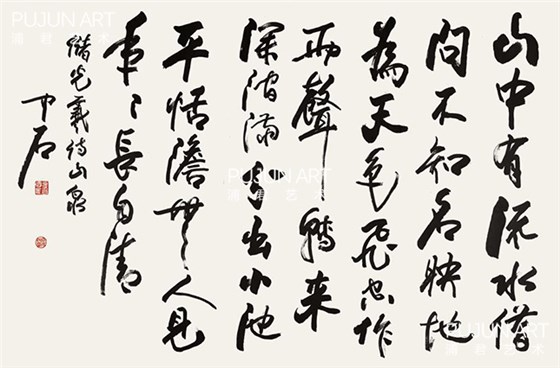 山中有流水借
問不知名映地
為天色飛空作
雨聲轉来
深澗滿分出小池
平恬澹無人見
年々長自清
儲光羲詩山泉
中石
PUJUN ART
浦君艺术
PUJUN ART
浦君艺术
PUJUN ART
浦君艺术